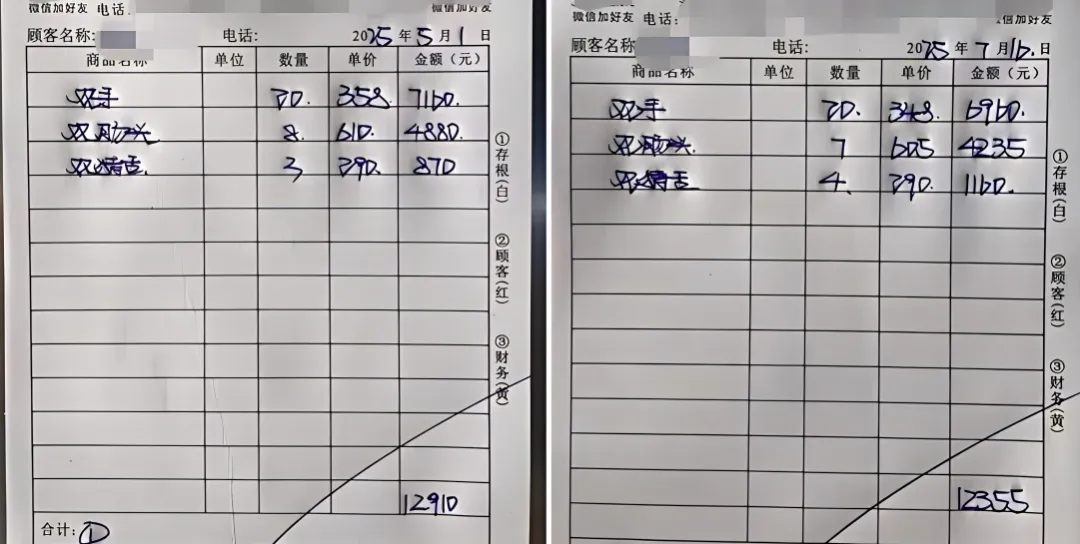 微信加好友 电话: 微信加好友
顾客名称: 电话: 2025年5月1日
商品名称 单位 数量 单价 金额（元）
双手 20. 358 7160.
双肋兴 8. 610. 4880.
3 290. 870
12910
合计: ①
①存根(白)
②顾客(红)
③财务(黄)
微信加好友 电话: 信加好友
顾客名称 电话: 2025年7月16.日
商品名称 单位 数量 单价 金额（元）
双手 20. 348. 6960.
双肋兴 7 605 4235
4. 290. 1160.
12355
①存根(白)
②顾客(红)
③财务(黄)